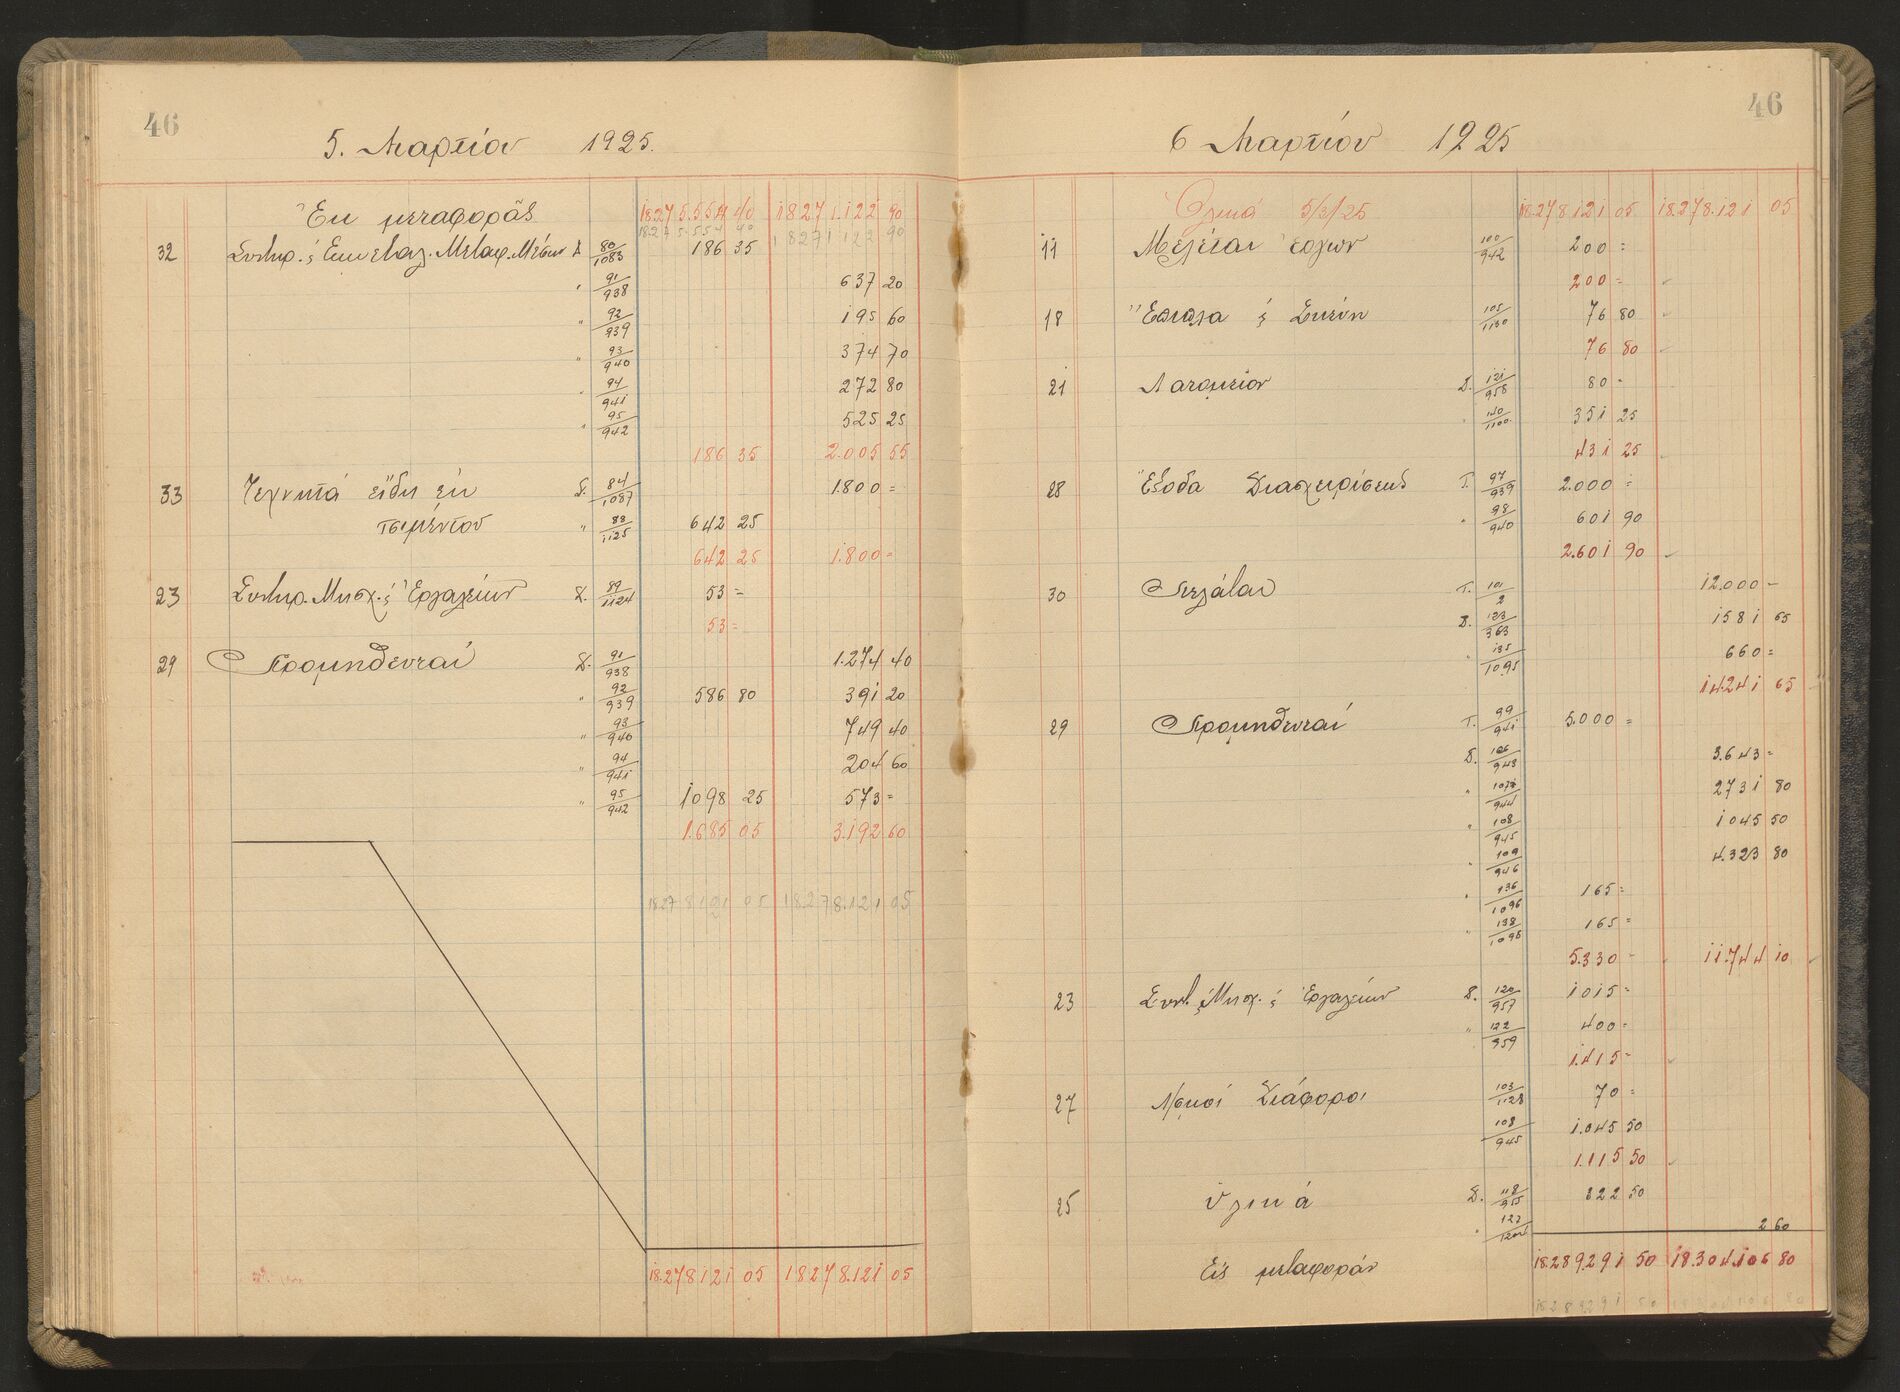 46
5. Μαρτίου 1925.
Ἐκ μεταφορᾶς 18.275.554 40 18.271.122 90
18.275.554 40 18271122 90
32 Συντηρ. & Εκμεταλ. Μεταφ. Μέσων Δ 80/1083 186 35
" 91/938 637 20
" 92/939 195 60
" 93/940 374 70
" 94/941 272 80
" 95/942 525 25
186 35 2.005 55
33 Τεχνητά εἴδη ἐκ 84/1087 1.800 =
τσιμέντου " 88/1125 642 25
642 25 1.800 =
23 Συντηρ. Μηχ. & Ἐργαλείων Δ. 89/1124 53 =
53 =
29 Προμηθευταί Δ. 91/938 1.274 40
" 92/939 586 80 391 20
" 93/940 749 40
" 94/941 204 60
" 95/942 1098 25 573 =
1.685 05 3.192 60
18278121 05 18278.121 05
18.278121 05 18278.121 05
46
6 Μαρτίου 1925
Ὁλικά 5/3/25 18.278121 05 18.278.121 05
11 Μελέται Ἔργων 100/942 200 =
200 =
18 Ἔπιπλα & Σκεύη 105/1130 76 80
76 80
21 Λατομεῖον Δ. 121/958 80 -
" 140/1100 351 25
431 25
28 Ἔξοδα Διαχειρίσεως Τ. 97/939 2.000 =
" 98/940 601 90
2.601 90
30 Πελάται Τ. 101/2 12.000 -
Δ. 123/363 1581 65
" 135/1095 660 =
14241 65
29 Προμηθευταί Τ. 99/941 5.000 =
Δ. 106/943 3.643 =
" 107/944 2731 80
" 108/945 1045 50
" 109/946 4.323 80
" 136/1096 165 =
" 138/1098 165 =
5.330 - 11.744 10
23 Συντ. Μηχ. & Ἐργαλείων Δ. 120/957 1015 =
" 122/959 400 =
1.415 -
27 Λ/σμοί Διάφοροι 103/1128 70 =
108/945 1.045 50
1.115 50
25 Ὑλικά Δ. 118/955 322 50
" 127/1202 2 60
Εἰς μεταφοράν 18.289.291 50 18.304.106 80
18289291 50 18304106 80